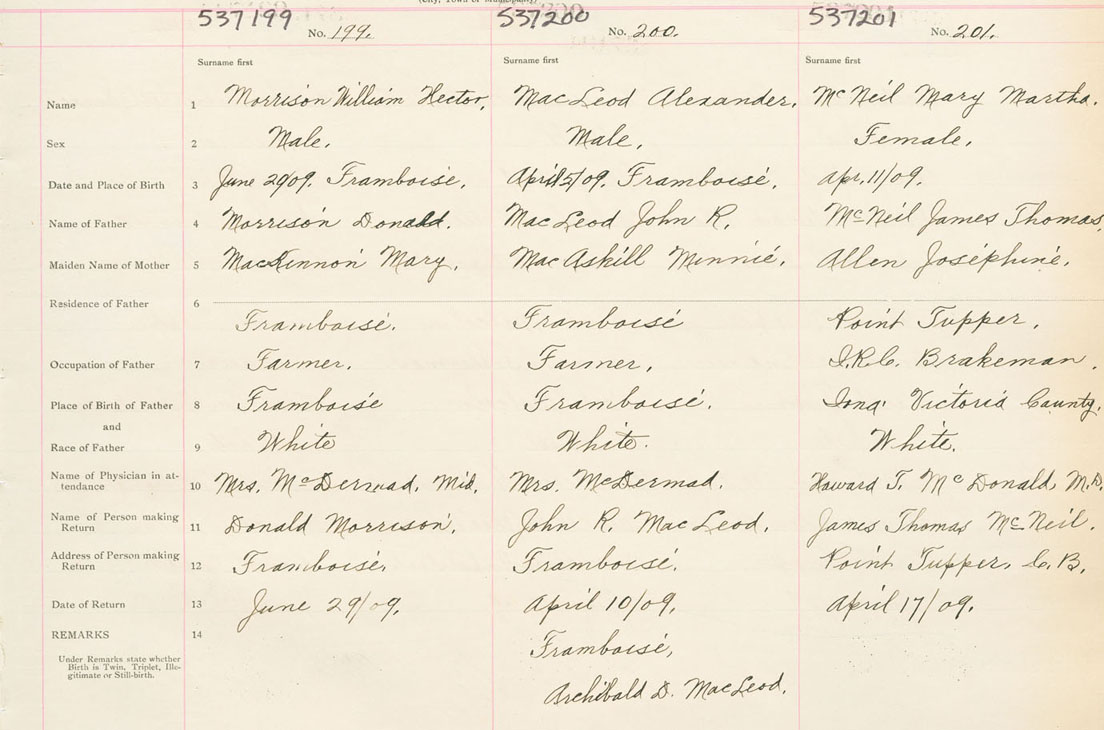 (City, Town or Municipality)
537199 No. 199. 537200 No. 200. 537201 No. 201.
Surname first Surname first Surname first
Name 1 Morrison William Hector, MacLeod Alexander, McNeil Mary Martha.
Sex 2 Male. Male, Female.
Date and Place of Birth 3 June 29/09. Framboise. April 5/09. Framboise. Apr. 11/09.
Name of Father 4 Morrison Donald. MacLeod John R. McNeil James Thomas,
Maiden Name of Mother 5 MacKinnon Mary. MacAskill Minnie. Allen Josephine.
Residence of Father 6
Framboise. Framboise Point Tupper.
Occupation of Father 7 Farmer. Farmer, I.R.C. Brakeman.
Place of Birth of Father 8 Framboise Framboise. Iona Victoria County.
and
Race of Father 9 White White. White.
Name of Physician in at-
tendance 10 Mrs. McDermad, Mid. Mrs. McDermad. Howard T. McDonald, M.D.
Name of Person making
Return 11 Donald Morrison. John R. MacLeod. James Thomas McNeil.
Address of Person making
Return 12 Framboise. Framboise. Point Tupper, C.B.
Date of Return 13 June 29/09. April 10/09. April 17/09.
REMARKS 14 Framboise,
Under Remarks state whether
Birth is Twin, Triplet, Ille-
gitimate or Still-birth.
Archibald D. MacLeod.